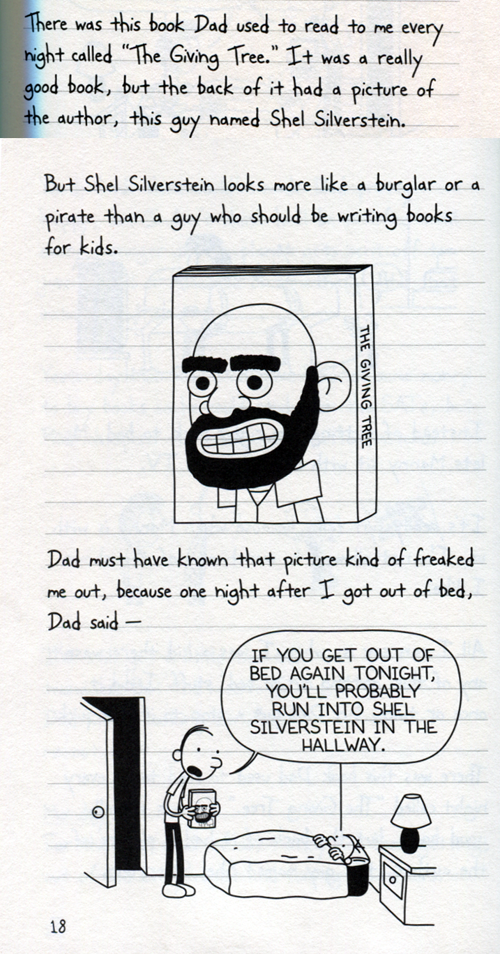 There was this book Dad used to read to me every
night called "The Giving Tree." It was a really
good book, but the back of it had a picture of
the author, this guy named Shel Silverstein.
But Shel Silverstein looks more like a burglar or a
pirate than a guy who should be writing books
for kids.
THE GIVING TREE
Dad must have known that picture kind of freaked
me out, because one night after I got out of bed,
Dad said —
IF YOU GET OUT OF
BED AGAIN TONIGHT,
YOU'LL PROBABLY
RUN INTO SHEL
SILVERSTEIN IN THE
HALLWAY.
18